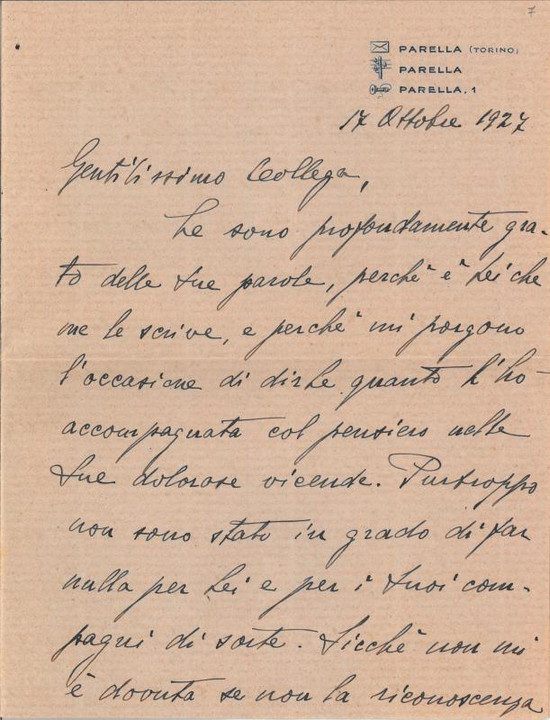 7
PARELLA (TORINO)
PARELLA
PARELLA. 1
17 Ottobre 1927
Gentilissimo Collega,
Le sono profondamente gra-
to delle Sue parole, perchè è Lei che
me le scrive, e perchè mi porgono
l'occasione di dirLe quanto L'ho
accompagnata col pensiero nelle
Sue dolorose vicende. Purtroppo
non sono stato in grado di far
nulla per Lei e per i Suoi com-
pagni di sorte. Sicchè non mi
è dovuta se non la riconoscenza